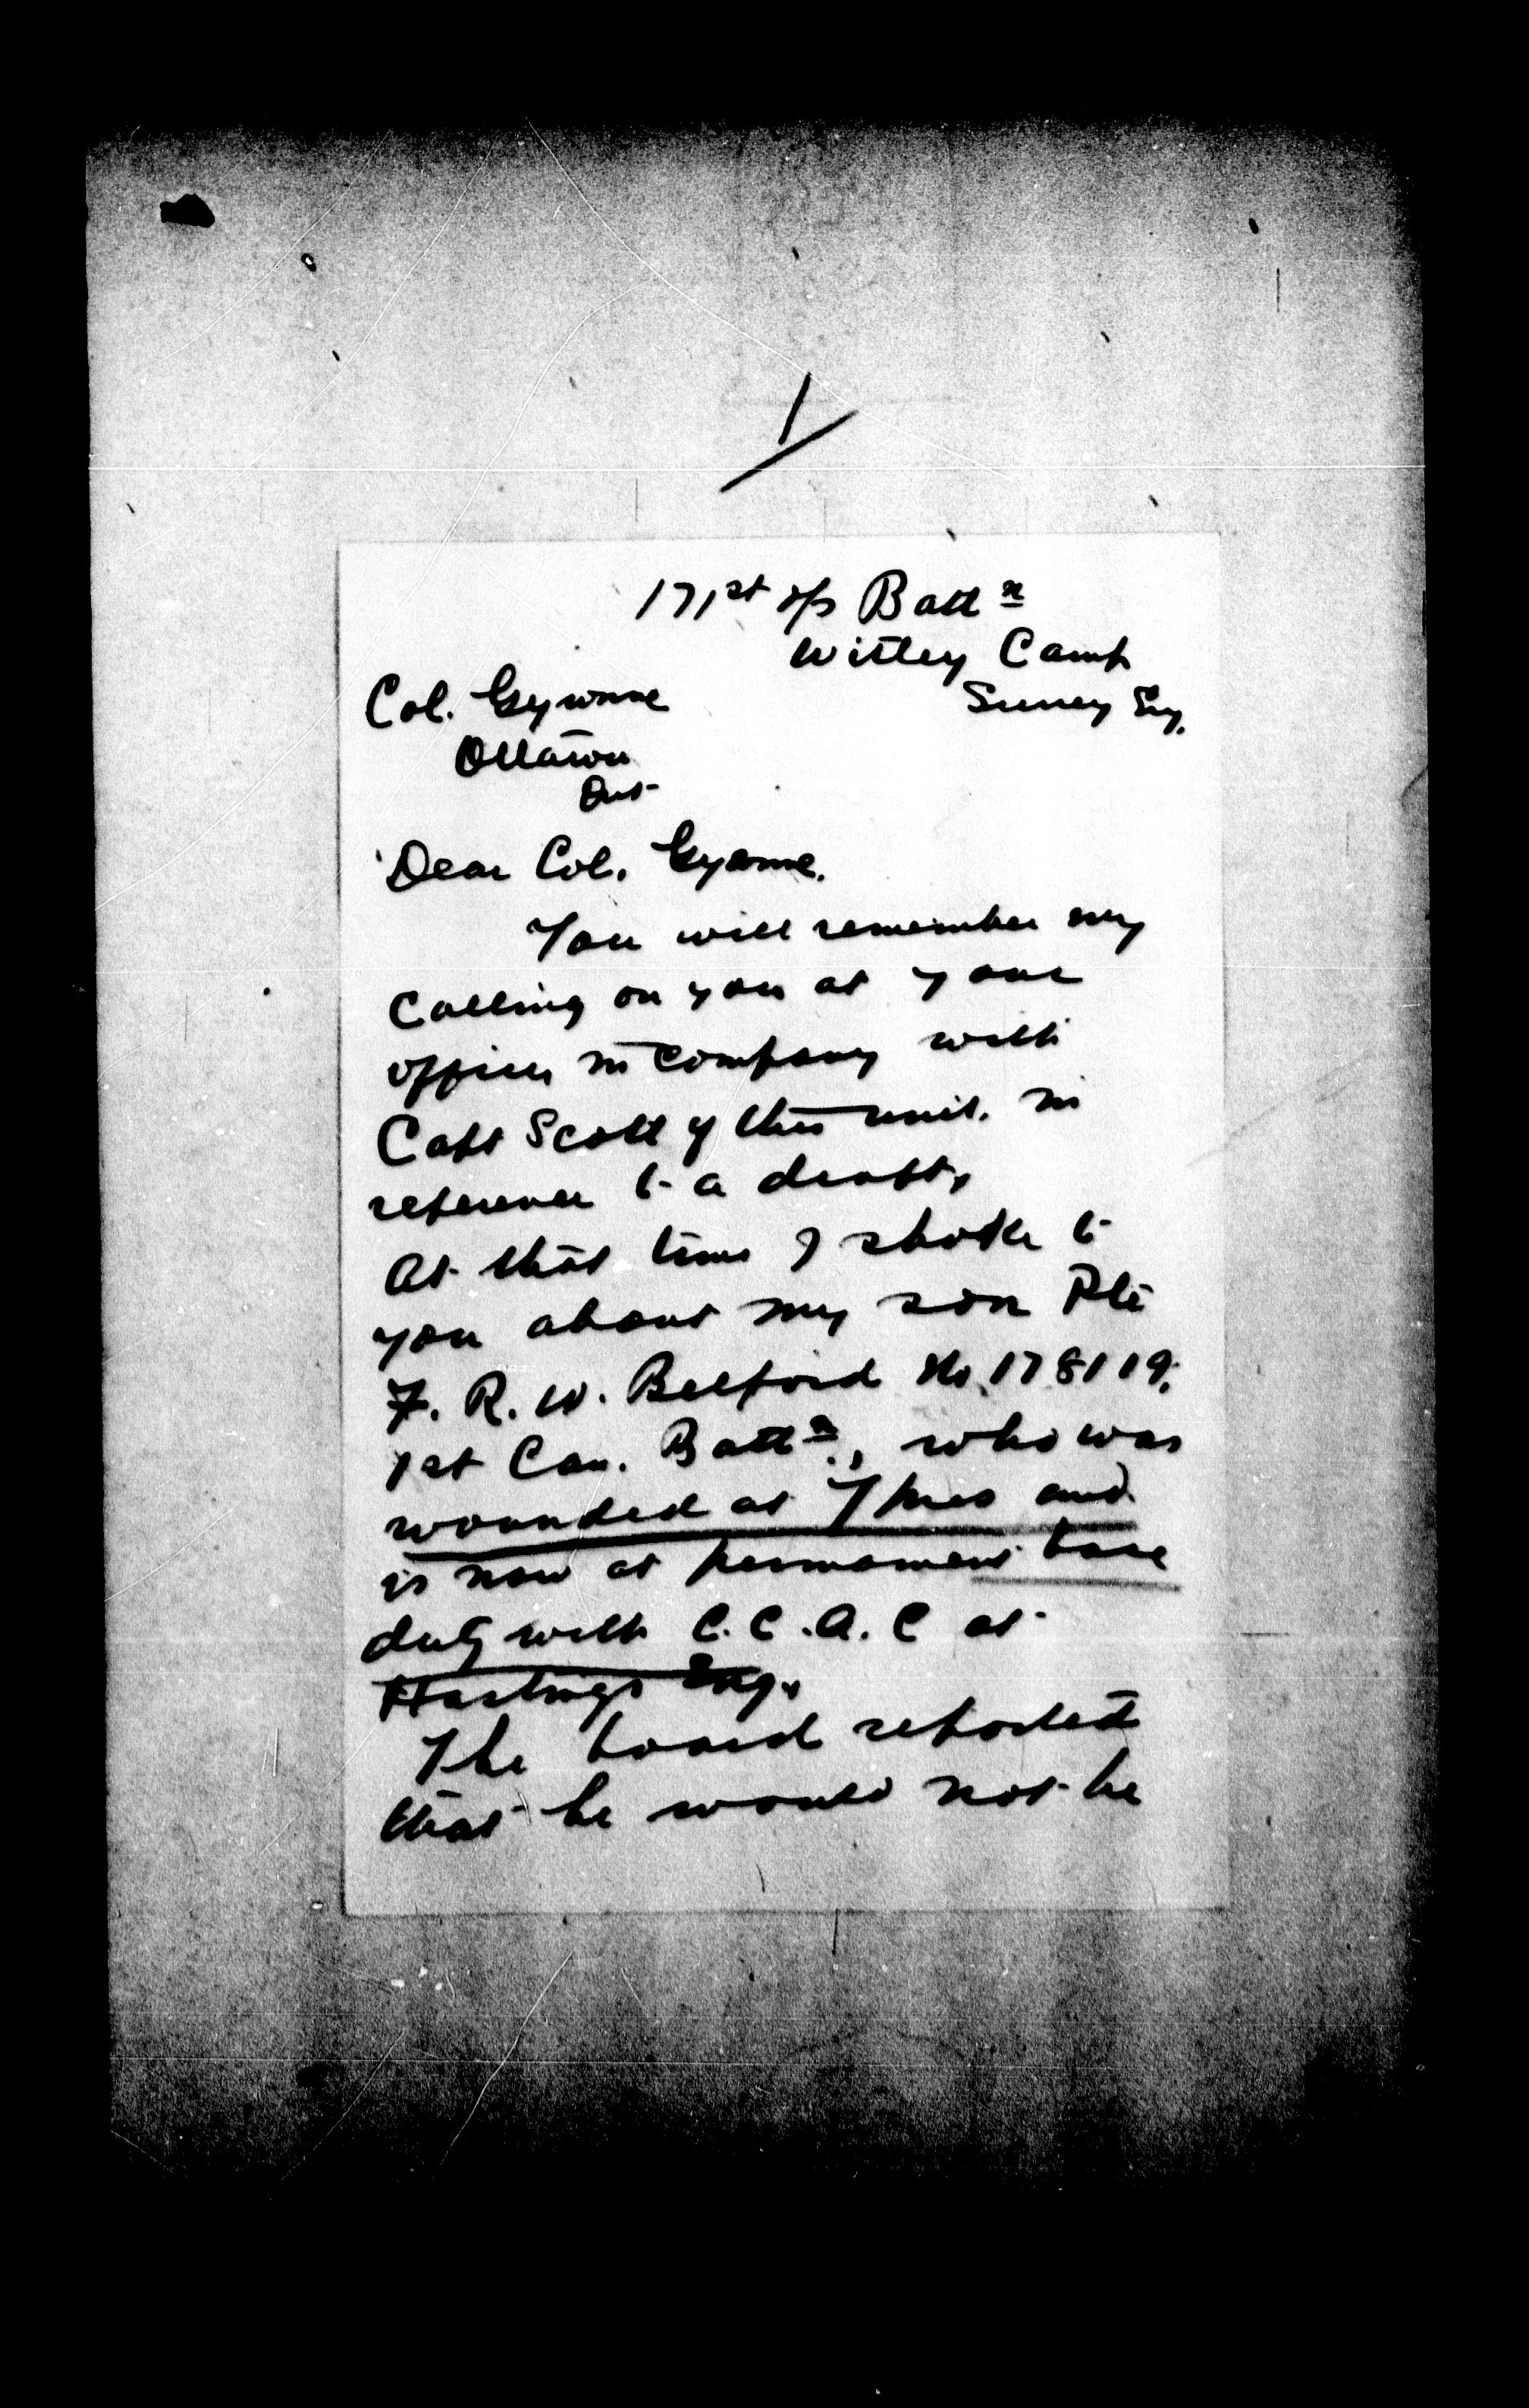 1
171st o/s Battn
Witley Camp
Surrey Eng.
Col. Gywnne
Ottawa
Ont
Dear Col. Gywnne.
You will remember my
calling on you at your
office in company with
Capt Scott of this unit. in
reference to a draft,
At that time I spoke to
you about my son Pte
F. R. W. Belford No. 178119.
1st Can. Battn., who was
wounded at Ypres and
is now at permanent base
duty with C.C.A.C at
Hastings Eng.
The board reported
that he would not be